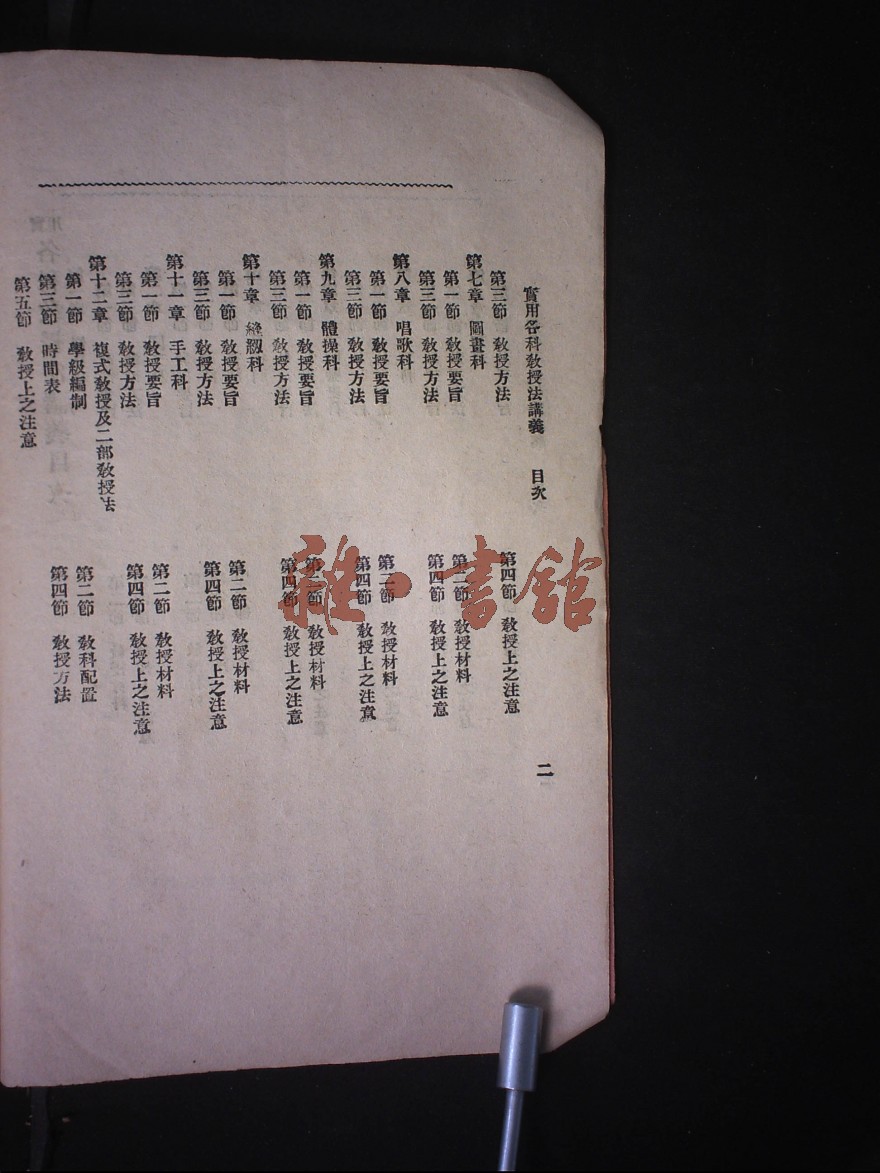 實用各科敎授法講義　目次　二
第三節　敎授方法　第四節　敎授上之注意
第七章　圖畫科
第一節　敎授要旨　第二節　敎授材料
第三節　敎授方法　第四節　敎授上之注意
第八章　唱歌科
第一節　敎授要旨　第二節　敎授材料
第三節　敎授方法　第四節　敎授上之注意
第九章　體操科
第一節　敎授要旨　第二節　敎授材料
第三節　敎授方法　第四節　敎授上之注意
第十章　縫紉科
第一節　敎授要旨　第二節　敎授材料
第三節　敎授方法　第四節　敎授上之注意
第十一章　手工科
第一節　敎授要旨　第二節　敎授材料
第三節　敎授方法　第四節　敎授上之注意
第十二章　複式敎授及二部敎授法
第一節　學級編制　第二節　敎科配置
第三節　時間表　第四節　敎授方法
第五節　敎授上之注意
雜·書館